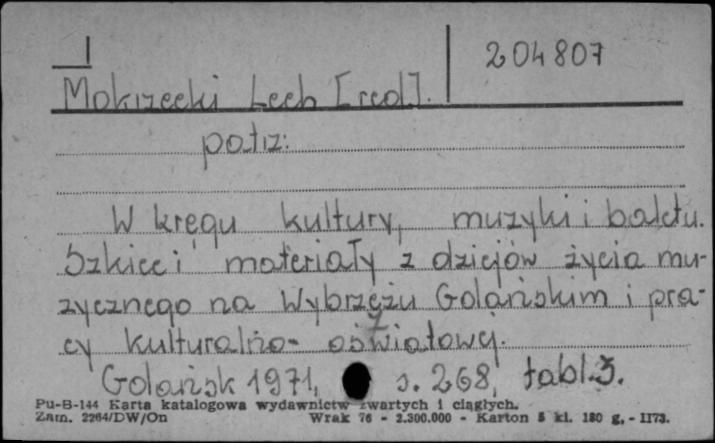 204807
Mokrzecki Lech [red].
patrz:
W kręgu kultury, muzyki i baletu.
Szkice i materiały z dziejów życia mu-
zycznego na Wybrzeżu Gdańskim i pra-
cy kulturalno-oświatowej.
Gdańsk 1971, s. 268, tabl.3.
Pu-B-144 Karta katalogowa wydawnictw zwartych i ciągłych.
Zam. 2264/DW/On Wrak 76 - 2.300.000 - Karton 5 kl. 180 g. - 1173.